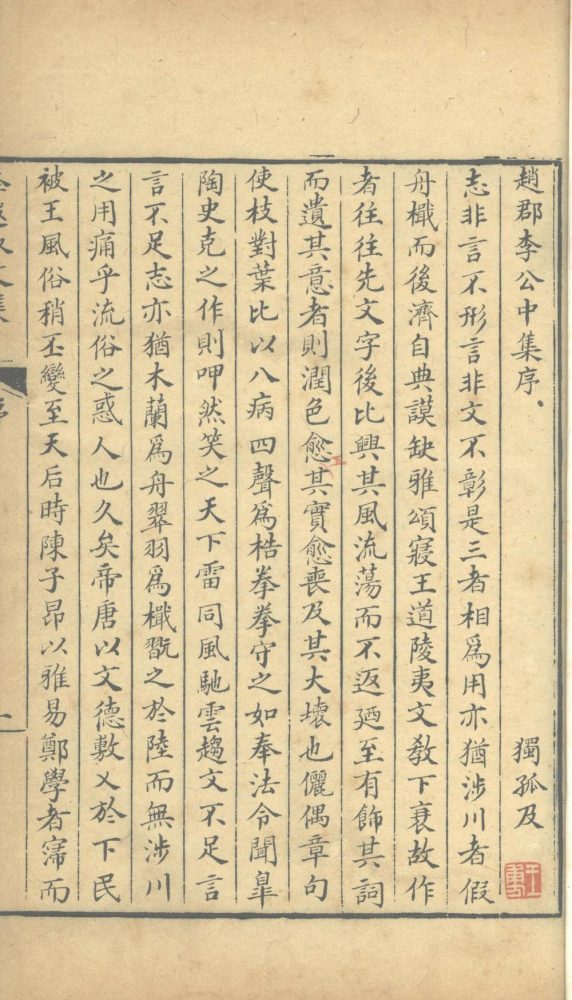 趙郡李公中集序 獨孤及
志非言不形言非文不彰是三者相爲用亦猶涉川者假
舟檝而後濟自典謨缺雅頌寢王道陵夷文教下衰故作
者往往先文字後比興其風流蕩而不返廼至有飾其詞
而遺其意者則潤色愈其實愈喪及其大壞也儷偶章句
工
使枝對葉比以八病四聲爲梏拲拲守之如奉法令聞臯
陶史克之作則呷然笑之天下雷同風馳雲趨文不足言
言不足志亦猶木蘭爲舟翠羽爲檝翫之於陸而無涉川
之用痛乎流俗之惑人也久矣帝唐以文德敷乂於下民
被王風俗稍丕變至天后時陳子昂以雅易鄭學者寖而
序
一